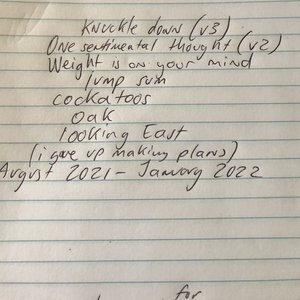 Knuckle down (v3)
One sentimental thought (v2)
Weight is on your mind
lump sum
cockatoos
oak
looking East
(i gave up making plans)
August 2021 - January 2022
for